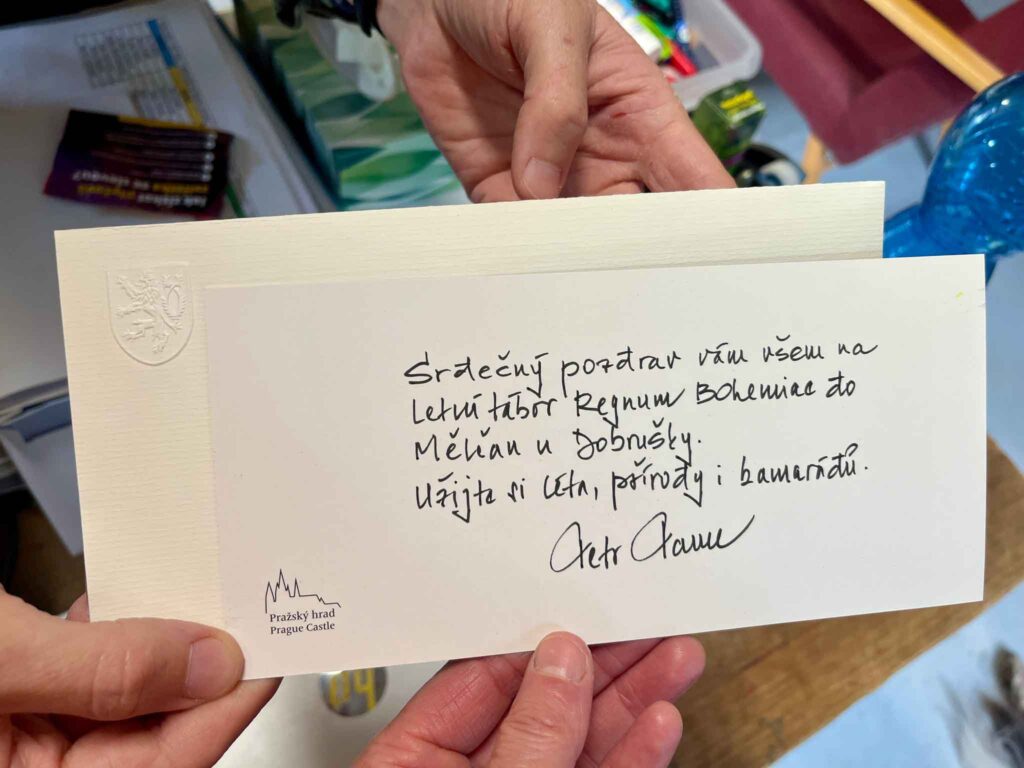 Srdečný pozdrav vám všem na
Letní tábor Regnum Bohemiae do
Mělčan u Dobrušky.
Užijte si léta, přírody i kamarádů.
Petr Pavel
Pražský hrad
Prague Castle